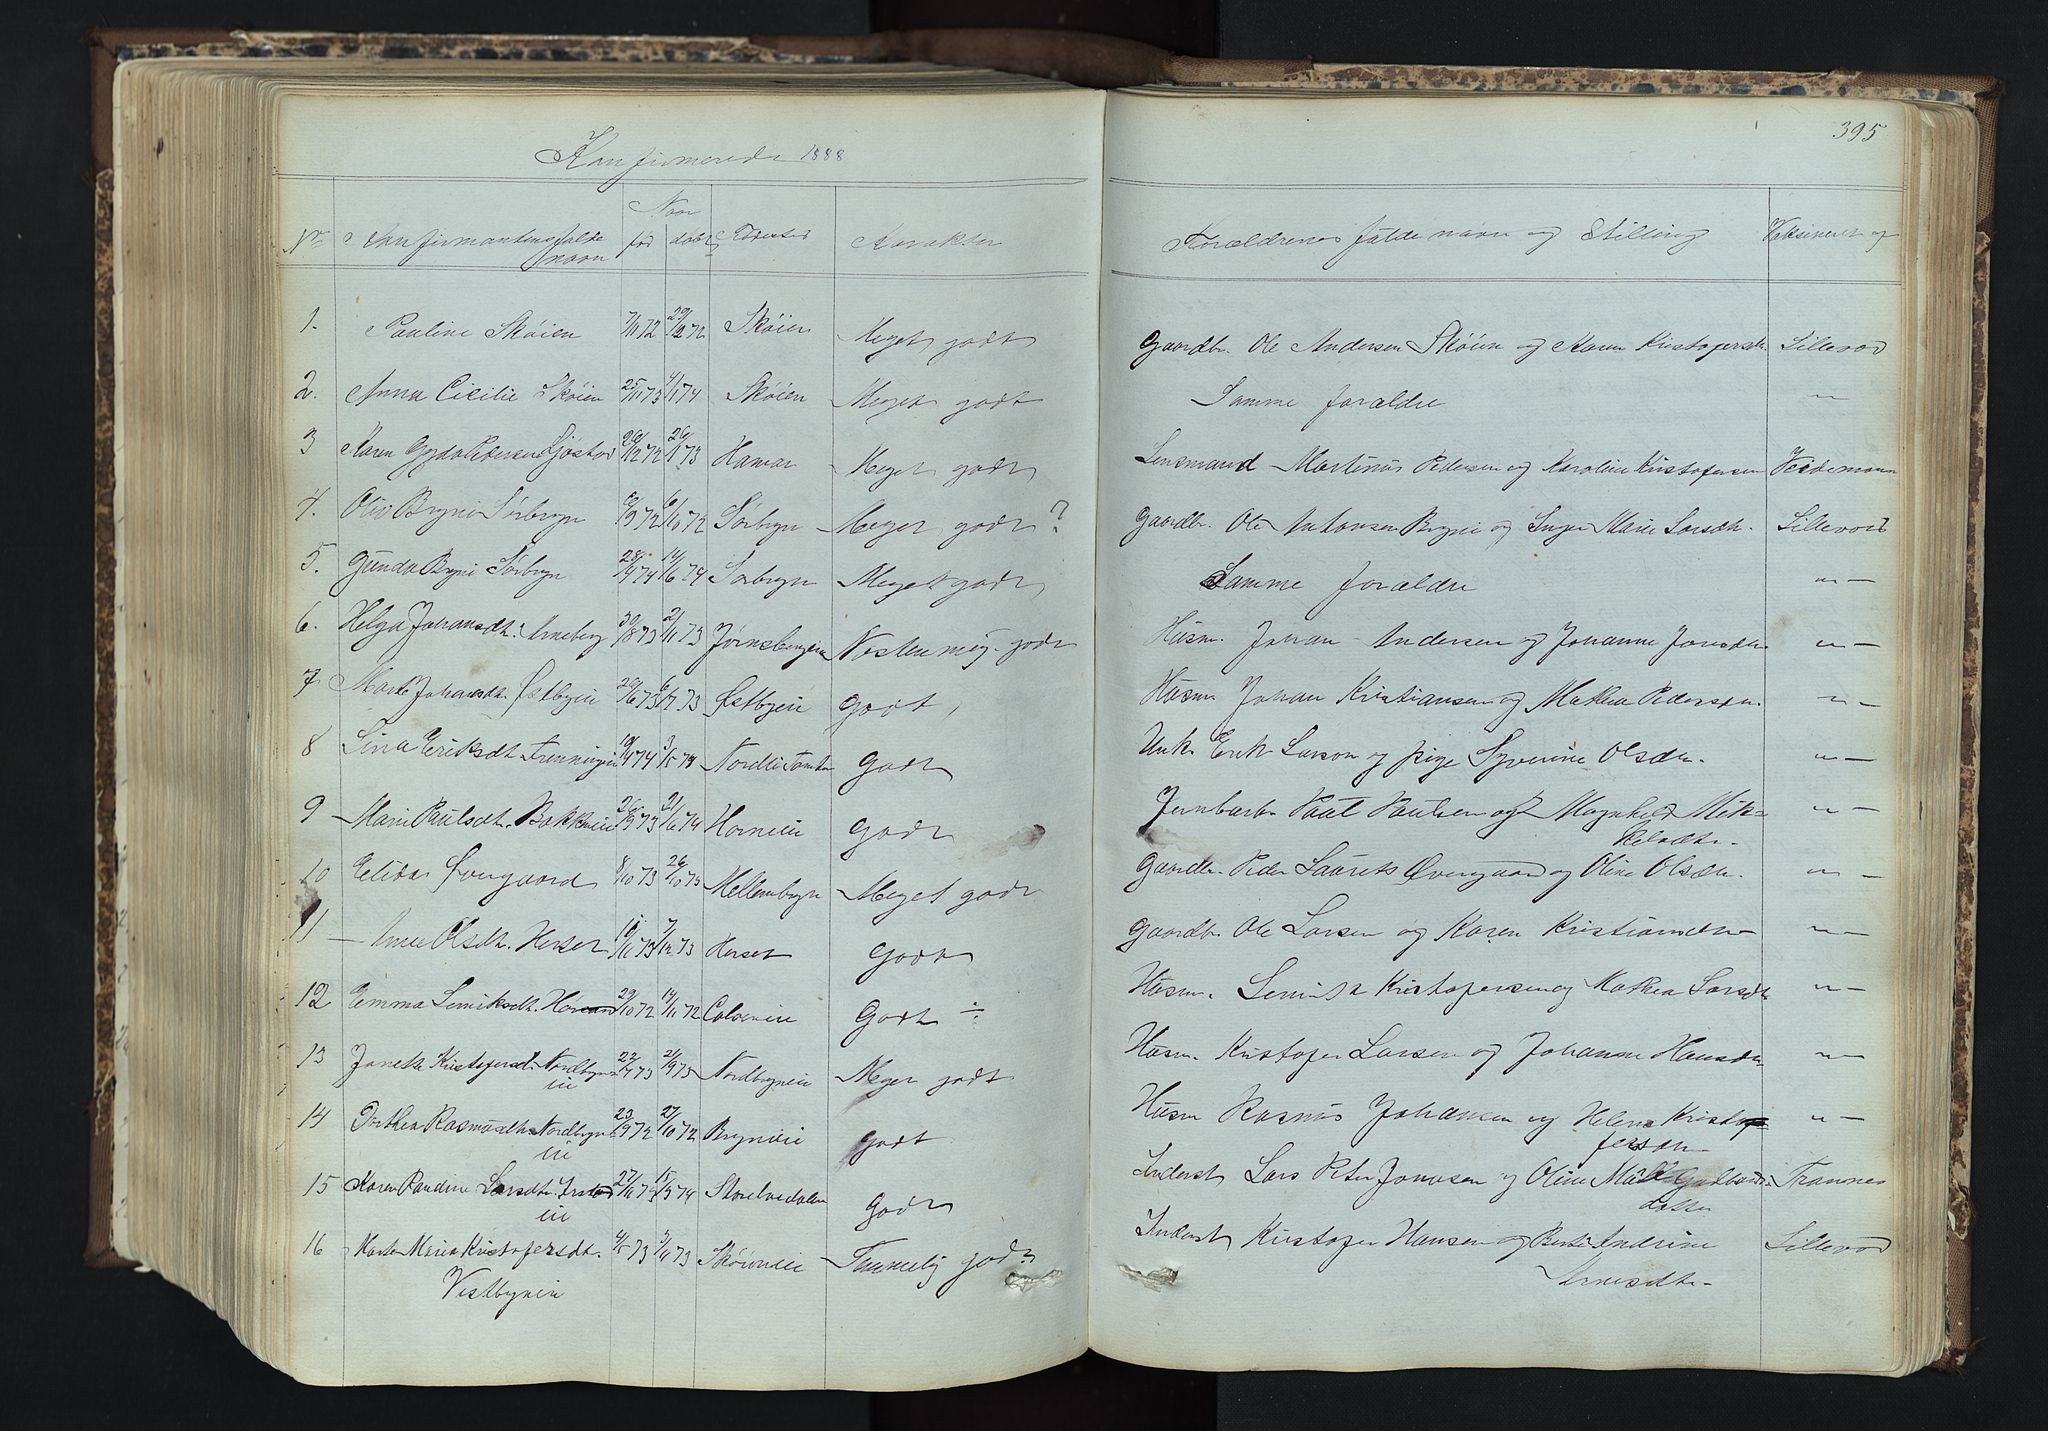 Konfirmerede 1888
395
Nr Konfirmantens fulde navn Naar fød døbt Fødested Karakter Forældrenes fulde navn og Stilling Vaksineret af
1. Pauline Skøien 7/11 72 29/12 72 Skøien Meget godt Gaardbr. Ole Andersen Skøien og Karen Kristofersdt. Lillevold
2. Anna Cicilie Skøien 25/11 73 4/1 74 Skøien Meget godt Samme forældre — " —
3 Karen Gyda Pedersen 26/12 72 26/1 73 Hamar Meget godt Lensmand Martinus Pedersen og Karoline Kristofersen
4. Bryni Sørbyn /9 72 6/10 72 Sørbyn Meget godt ? Gaardbr. Ole Bryni og Inger Marie Larsdt. Lillevold
5. Gunda Bryni Sørbyn 28/4 74 14/6 74 Sørbyn Meget godt Samme forældre " —
6. Helga Johansdt. Arneberg 30/8 73 2/11 73 Næsten meg. godt Husm. Johan Andersen og Johanne Jonsdt. " —
7 Johansdt. Østbyeie 29/6 73 6/7 73 Østbyeie Godt Husm. Johan Kristiansen og Mathea Pedersdt. " —
8 Lina Eriksdt. 19/4 74 3/5 74 Godt Unk. Erik Larson og pige Syverine Olsdtr. " —
9 Marie Paulsdt. Bakkeeie 26/9 73 21/6 74 Horneie Godt Jernbarb. Paul Paulsen og Magnhild Mik-
kelsdtr.
10 Elida Øvergaard 8/10 73 26/10 73 Mellembyn Meget godt Gaardbr. Peder Laurets Øvergaard og Oline Olsdtr. " —
11 Olsdt. Herset /11 73 7/12 73 Herset Godt Gaardbr. Ole Larsen og Karen Kristiansdtr. " —
12 Emma Lemiksdt. 29/10 72 14/11 72 Godt ÷ Husm. Kristofersen og Mathea Larsdt. " —
13 Kristofersdt. Nordbyn-
eie 22/7 73 21/9 73 Nordbyneie Meget godt Husm. Kristofer Larsen og Johanne Hansdtr. " —
14 Dorthea Rasmusdt. Nordbyn-
eie 23/9 72 27/10 72 Bryneie Godt Husm Rasmus Johansen og Helene Kristof-
fersdtr. " —
15 Karen Pauline Larsdt.
eie 27/11 73 15/3 74 Storelvedalen Godt Inderst Lars Peter Jonasen og Oline Gulbrands-
datter Trannes
16 Marte Maria Kristofersdt. 4/5 73 3/11 73 Skøieneie Temmelig godt Inderst Kristofer Hansen og Berte Andrine Lillevold
Vestbyneie Arnesdtr.